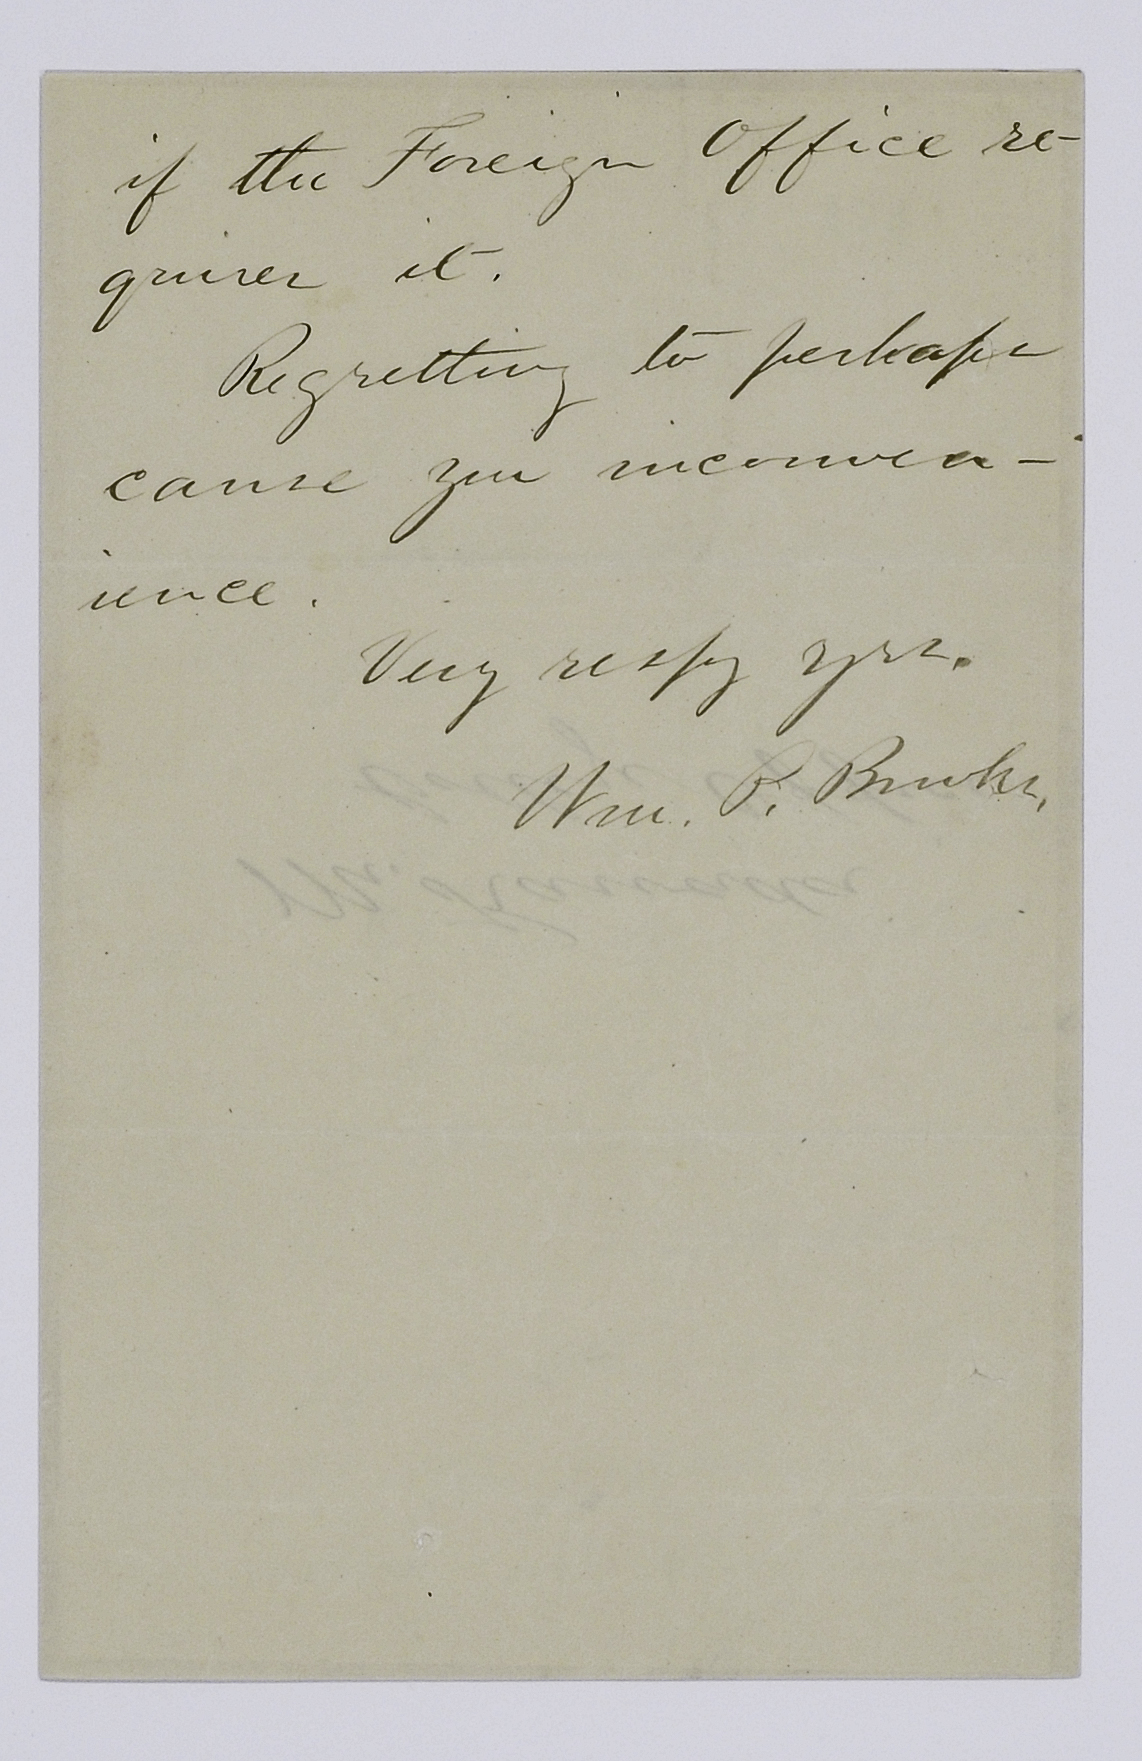 if the Foreign Office re-
quires it.
Regretting to perhaps
cause you inconven-
ience.
Very respy yrs.
Wm. P. Brooks.